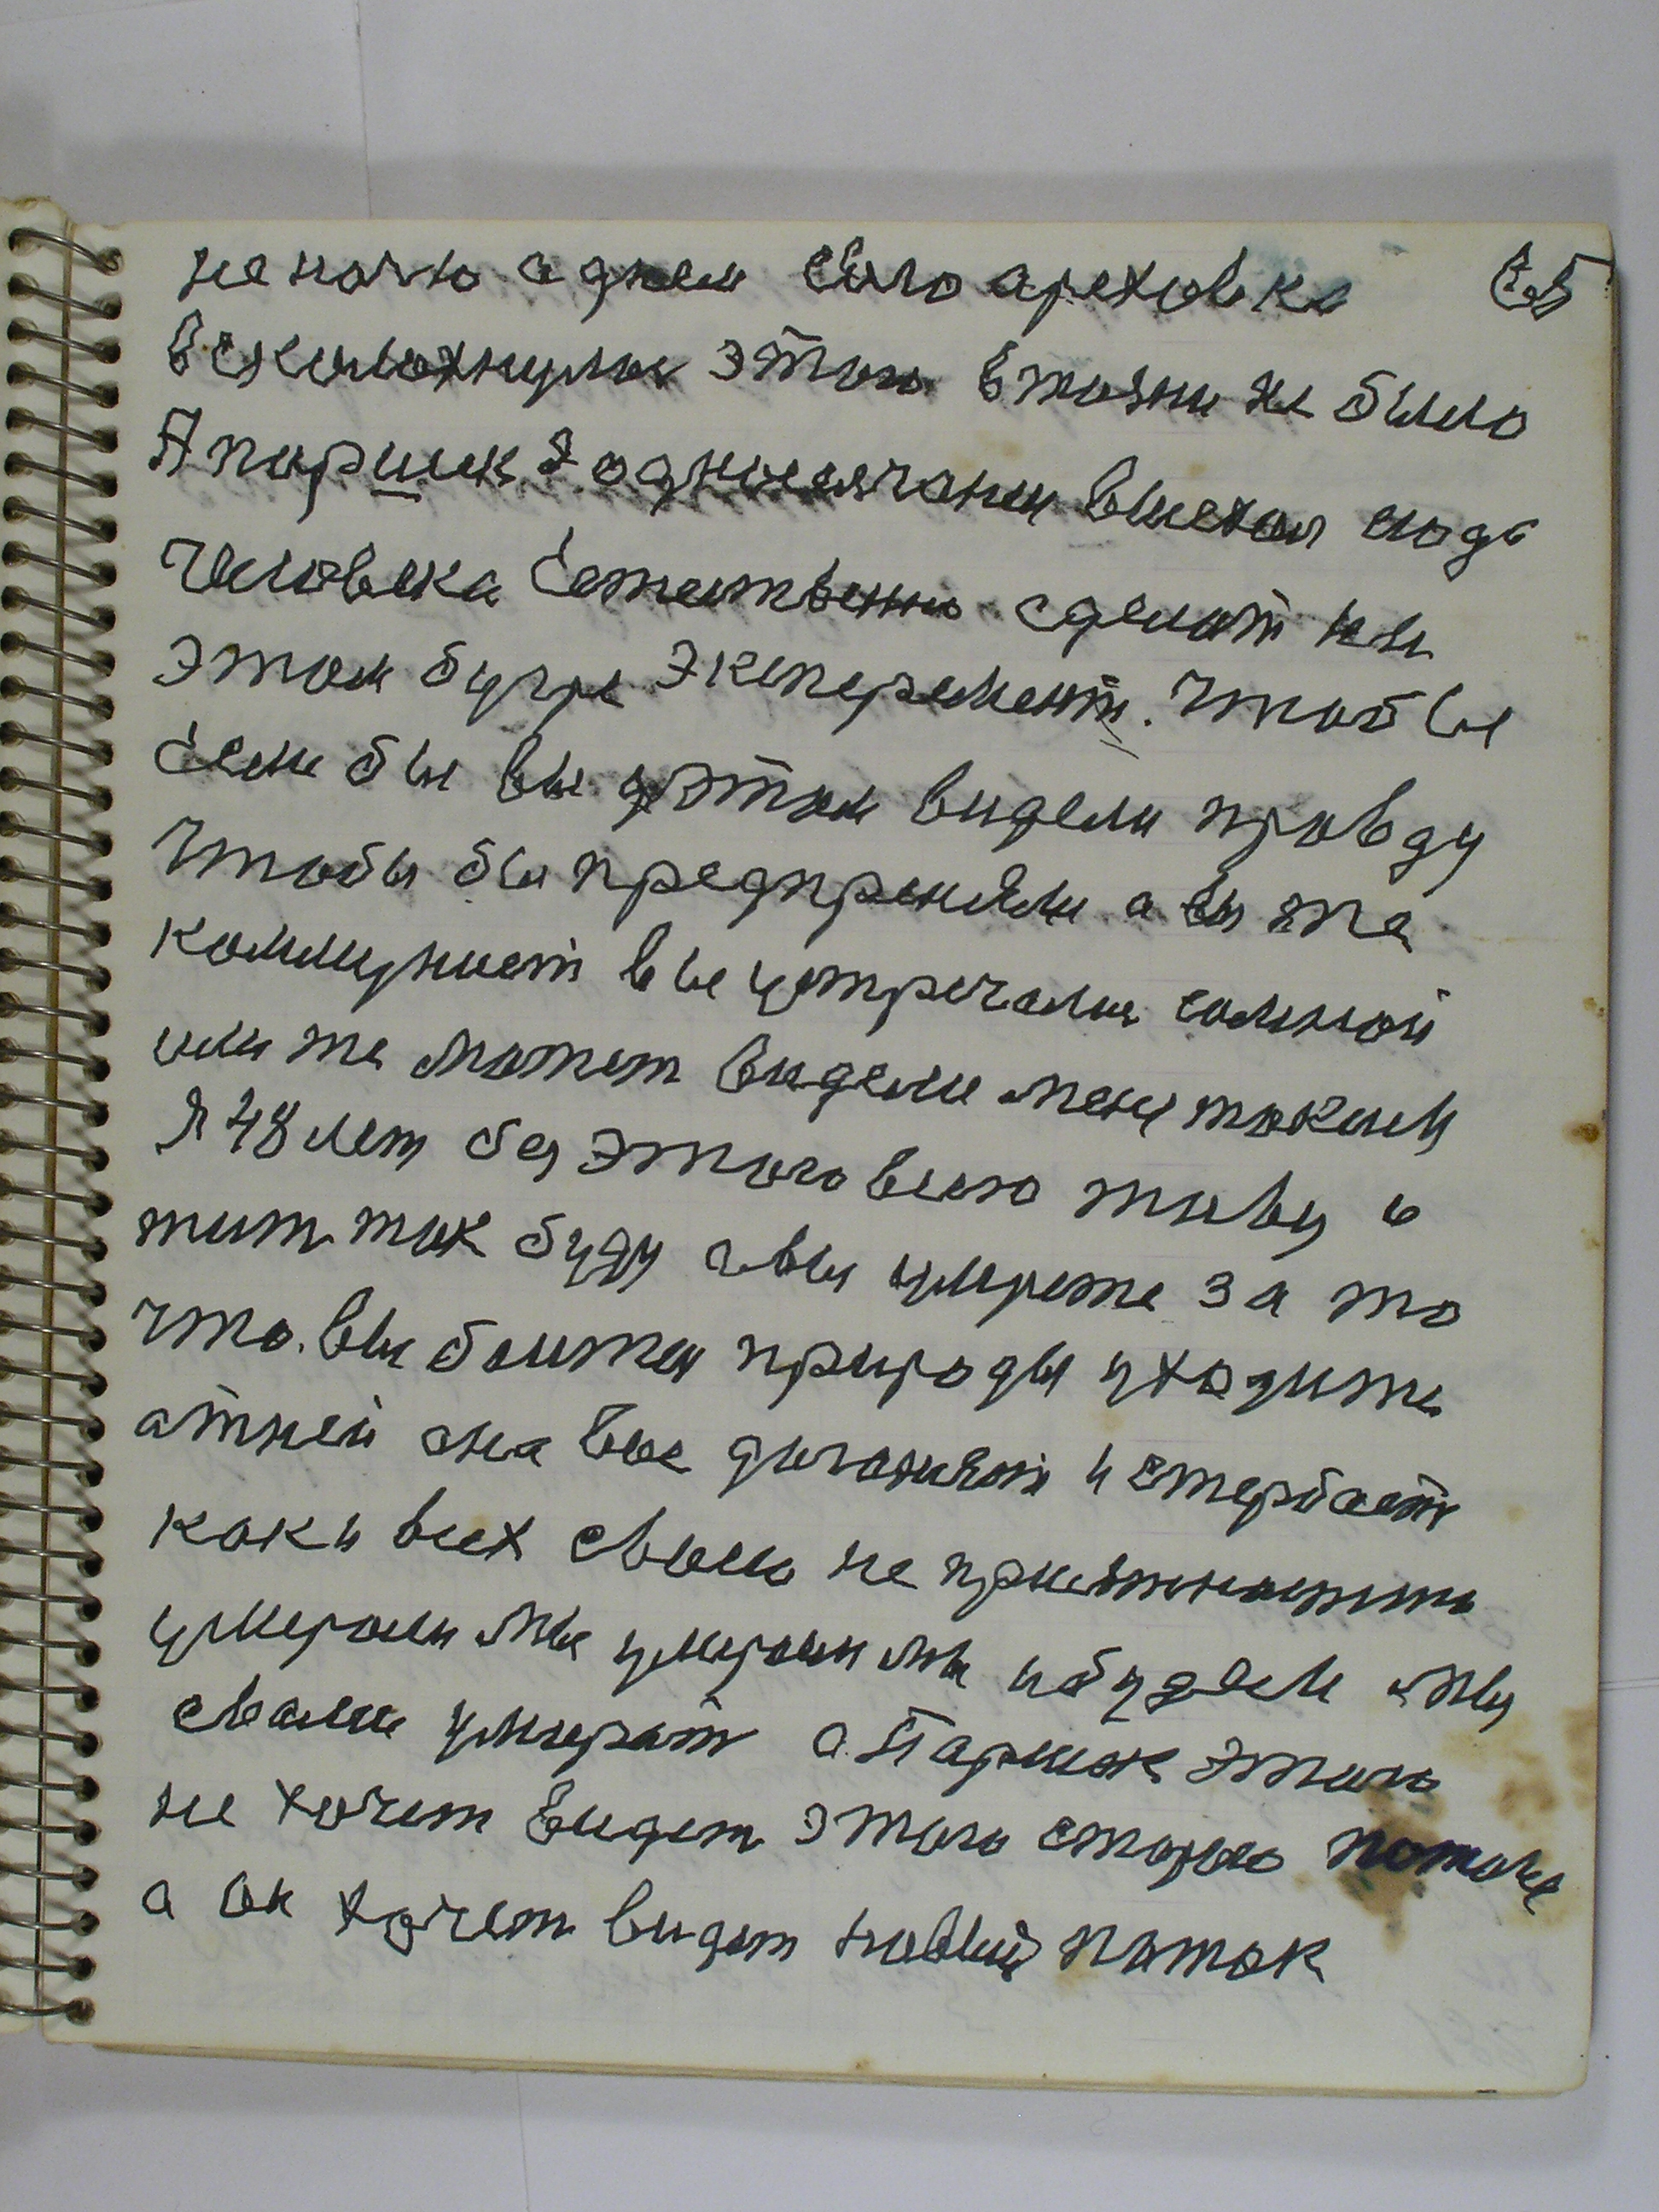 не ночю а днем Село ареховка
всколохнулас этого вжизни не было
А паршек з однеселчанем вшехал сюда
человека естественно сделат на
этом бугре экеперемент. Чтобы
если бы вы детом видели правду
Чтобы бы предпреняли а вы же
коммунист вы устречалис сомной
или же может видели меня таким
Я 48 лет без этого всего живу и
жит так буду а вы умрете за то
что. вы боитеся природы уходите
атней она вас догоняет и стербает
как и всех своею не приятностию
умерали мы умераим мы и будем мы
сваеми умерат а Паршек этого
не хочет видет этого старого потока
а он хочет видет новый поток